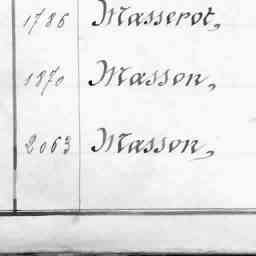 1786 Masserot,
1870 Masson,
2063 Masson,